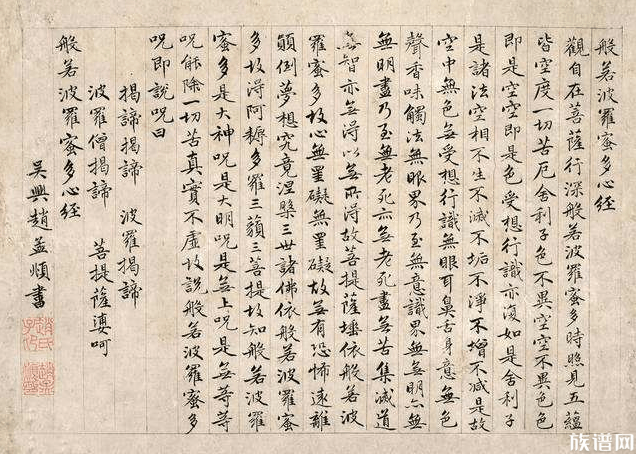 般若波羅蜜多心經
觀自在菩薩行深般若波羅蜜多時照見五蘊
皆空度一切苦厄舍利子色不異空空不異色色
即是空空即是色受想行識亦復如是舍利子
是諸法空相不生不滅不垢不淨不增不减是故
空中無色無受想行識無眼耳鼻舌身意無色
聲香味觸法無眼界乃至無意識界無無明亦無
無明盡乃至無老死亦無老死盡無苦集滅道
無智亦無得以無所得故菩提薩埵依般若波
羅蜜多故心無罣礙無罣礙故無有恐怖遠離
顛倒夢想究竟涅槃三世諸佛依般若波羅蜜
多故得阿耨多羅三藐三菩提故知般若波羅
蜜多是大神呪是大明呪是無上呪是無等等
呪能除一切苦真實不虛故說般若波羅蜜多
呪即說呪曰
揭諦揭諦 波羅揭諦
波羅僧揭諦 菩提薩婆呵
般若波羅蜜多心經
吳興趙孟頫書
族谱网